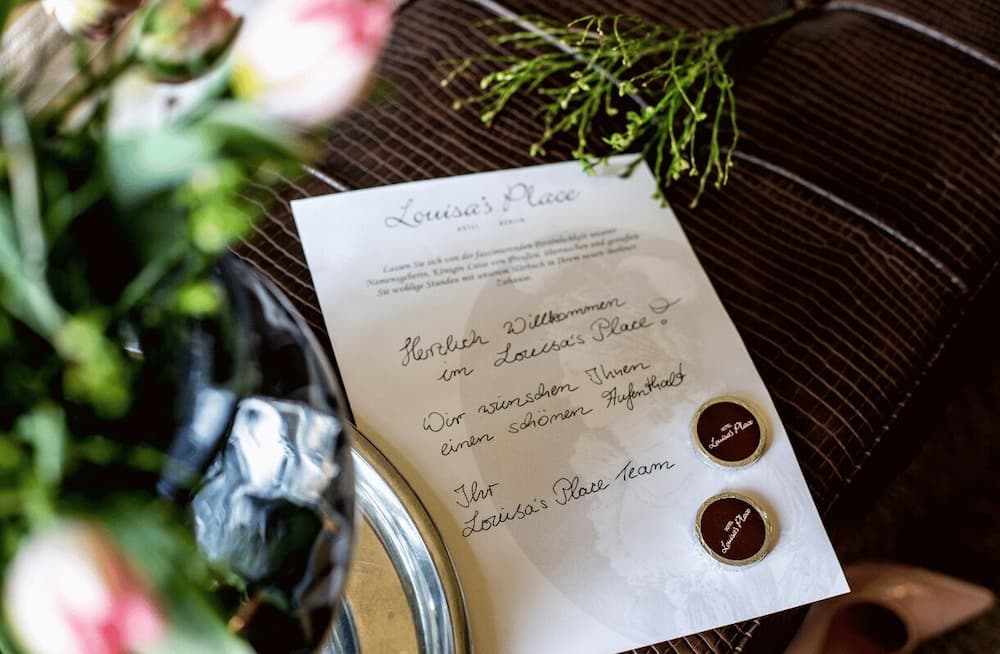 Louisa's Place
HOTEL BERLIN
Lassen Sie sich von der faszinierenden Persönlichkeit unserer
Namensgeberin, Königin Luise von Preußen, überraschen und genießen
Sie wohlige Stunden mit unserem Hörbuch in Ihrem neuen Berliner
Zuhause.
Herzlich Willkommen
im Louisa's Place!
Wir wünschen Ihnen
einen schönen Aufenthalt
Ihr
Louisa's Place Team
HOTEL
Louisa's Place
HOTEL
Louisa's Place